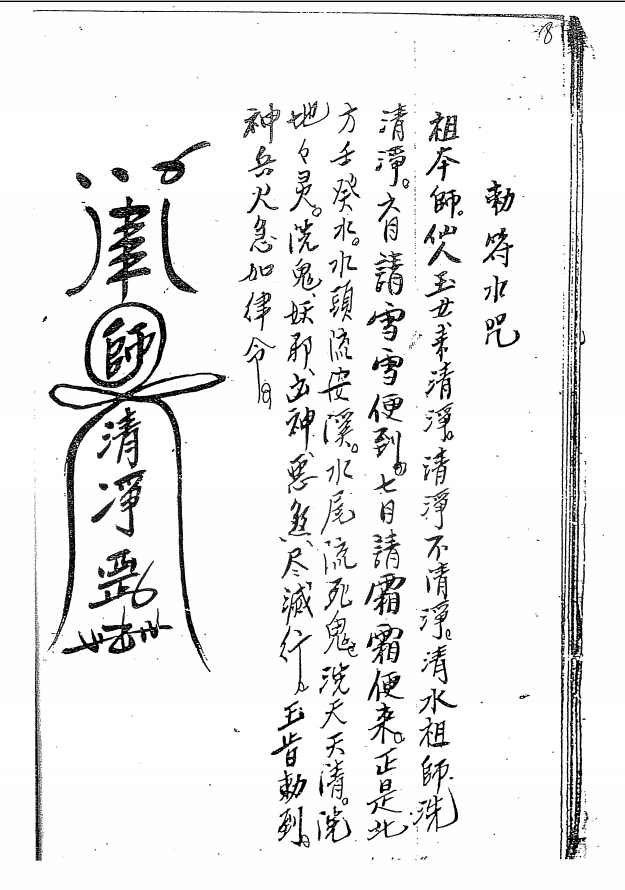 18
勅符水咒
祖本師。仙人玉女來清淨。清淨不清淨。清水祖師洗
清淨。六月請雪雪便到。七月請霜霜便来。正是北
方壬癸水。水頭流安溪。水尾流死鬼。洗天天清。洗
地々灵。洗鬼、妖邪、凶神惡煞、尽滅行。玉旨勅到。
神兵火急如律令。
師
清淨